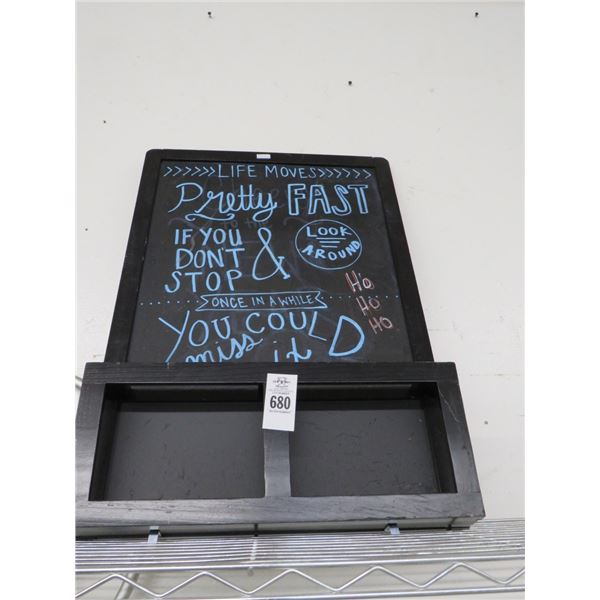 >>>>>>LIFE MOVES>>>>>>
Pretty FAST
IF YOU
DON'T
STOP
&
LOOK
AROUND
ONCE IN A WHILE
HO
HO
HO
YOU COULD
miss it
680